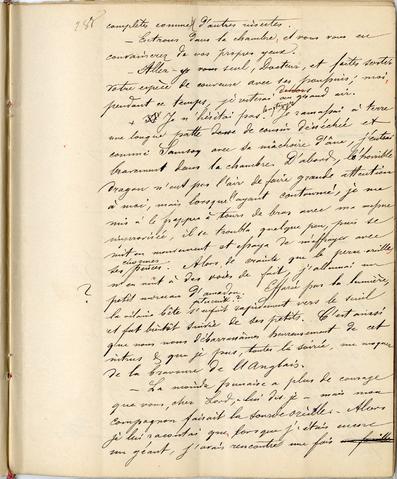 complètes comme d'autres insectes.
— Entrons dans la chambre, et vous vous en
convaincrez de vos propres yeux.
— Allez-y vous seul, Docteur, et faites sortir
votre espèce de couveuse avec ses poupons; moi,
pendant ce temps, je resterai au grand air.
Je n'hésitai pas. Je ramassai à terre
une longue patte de cousin desséchée et
comme Samson avec sa mâchoire d'âne, j'entrai
bravement dans la chambre. D'abord, l'horrible
dragon n'eut pas l'air de faire grande attention
à moi, mais lorsque l'ayant contourné, je me
mis à le frapper à tours de bras avec ma arme
improvisée, il se troubla quelque peu, puis se
mit en mouvement et essaya de m'effrayer avec
ses énormes pinces. Alors, de crainte que le perce-oreille
n'en vint à des voies de fait, j'allumai un
petit morceau d'amadou. Effarée par la lumière,
? la vilaine bête s'enfuit rapidement vers le seuil
et fut bientôt suivie de ses petits. C'est ainsi
que nous nous débarrassâmes heureusement de cet
intrus & que je pus, toute la soirée, me moquer
de la bravoure de l'Anglais.
— La moindre punaise a plus de courage
que vous, cher Lord, lui dis-je — mais mon
compagnon faisait la sourde oreille. Alors
je lui racontai que, lorsque j'étais encore
un géant, j'avais rencontré une fois